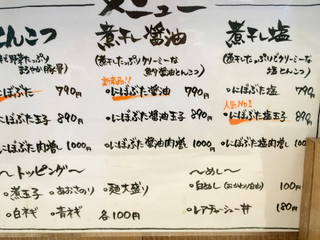 メニュー
とんこつ
煮干し醤油
煮干し塩
(煮干したっぷりクリーミーな
魚介醤油とんこつ)
(煮干したっぷりクリーミーな
塩とんこつ)
まろやか豚骨)
にぼぶた 790円
にぼぶた玉子 890円
にぼぶた肉増し 1000円
新商品!!
・にぼぶた醤油 790円
・にぼぶた醤油玉子 890円
・にぼぶた醤油肉増し 1000円
・にぼぶた塩 790円
人気No1
・にぼぶた塩玉子 890円
・にぼぶた塩肉増し 1000円
〜トッピング〜
・煮玉子 ・あおさのり ・麺大盛り
・白ネギ ・青ネギ 各100円
〜めし〜
・白めし(おかわり自由) 100円
・レアチャーシュー丼 180円